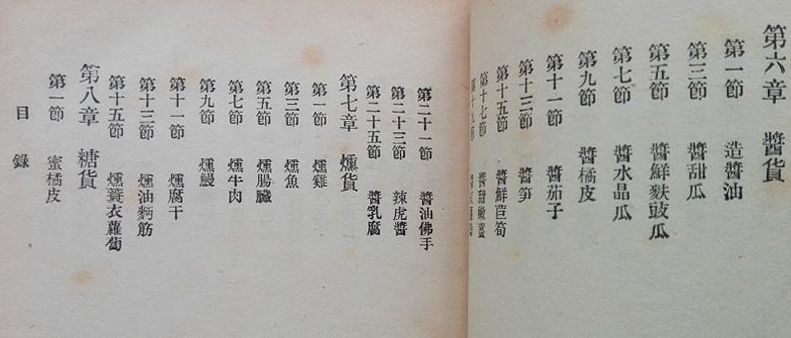 第六章　醬貨
第一節　造醬油
第三節　醬甜瓜
第五節　醬鮮麩豉瓜
第七節　醬水晶瓜
第九節　醬橘皮
第十一節　醬茄子
第十三節　醬笋
第十五節　醬鮮萵筍
第十七節　醬甜嫩薑
第二十一節　醬油佛手
第二十三節　辣虎醬
第二十五節　醬乳腐
第七章　燻貨
第一節　燻雞
第三節　燻魚
第五節　燻腸臟
第七節　燻牛肉
第九節　燻鰻
第十一節　燻腐干
第十三節　燻油麪筋
第十五節　燻蓑衣蘿蔔
第八章　糖貨
第一節　蜜橘皮
目錄